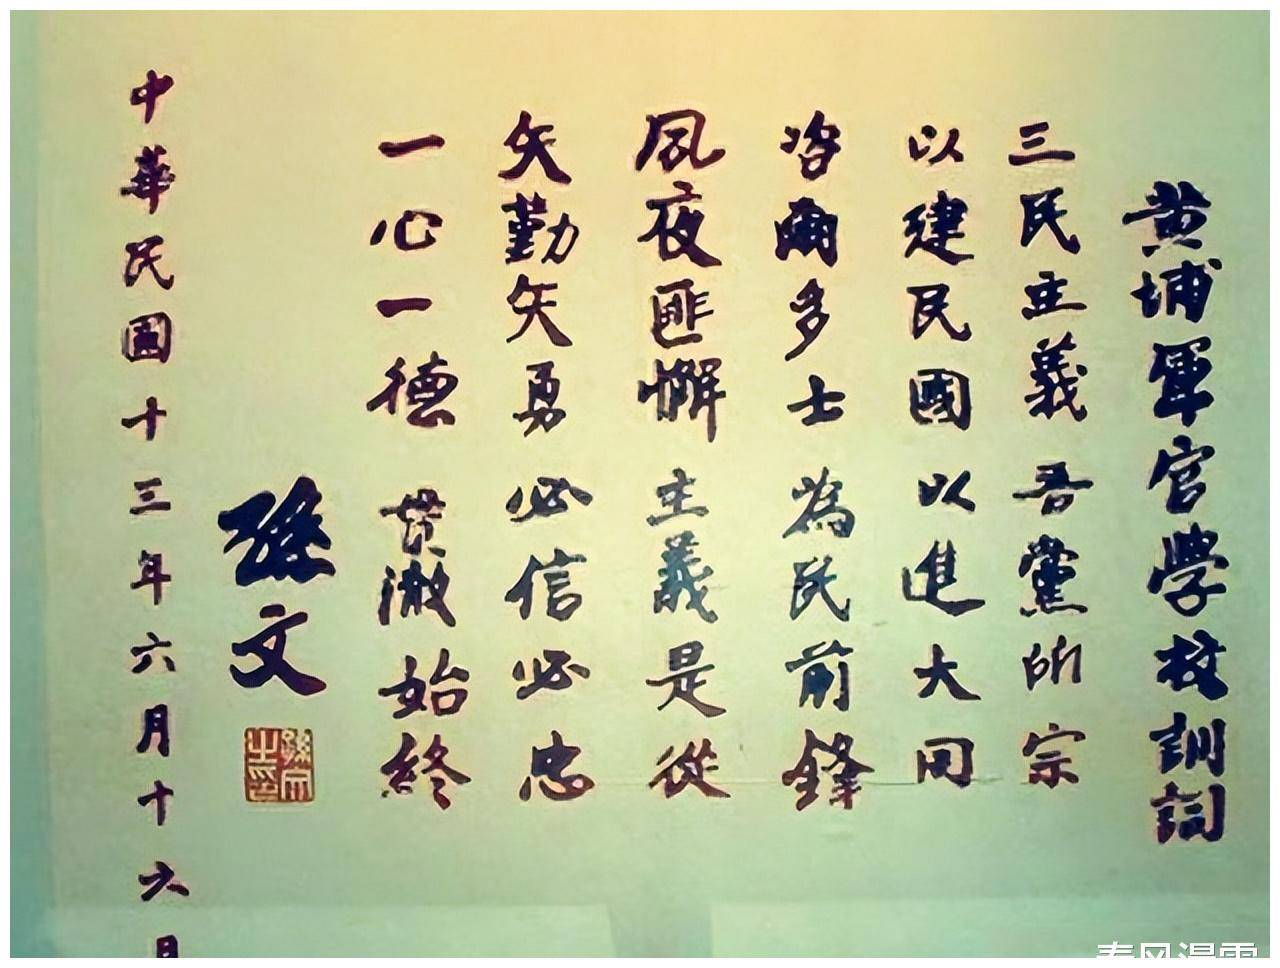 黄埔軍官學校訓詞
三民主義吾黨所宗
以建民國以進大同
咨爾多士為民前鋒
夙夜匪懈主義是從
矢勤矢勇必信必忠
一心一德貫澈始終
孫文
孫文之印
中華民國十三年六月十六日